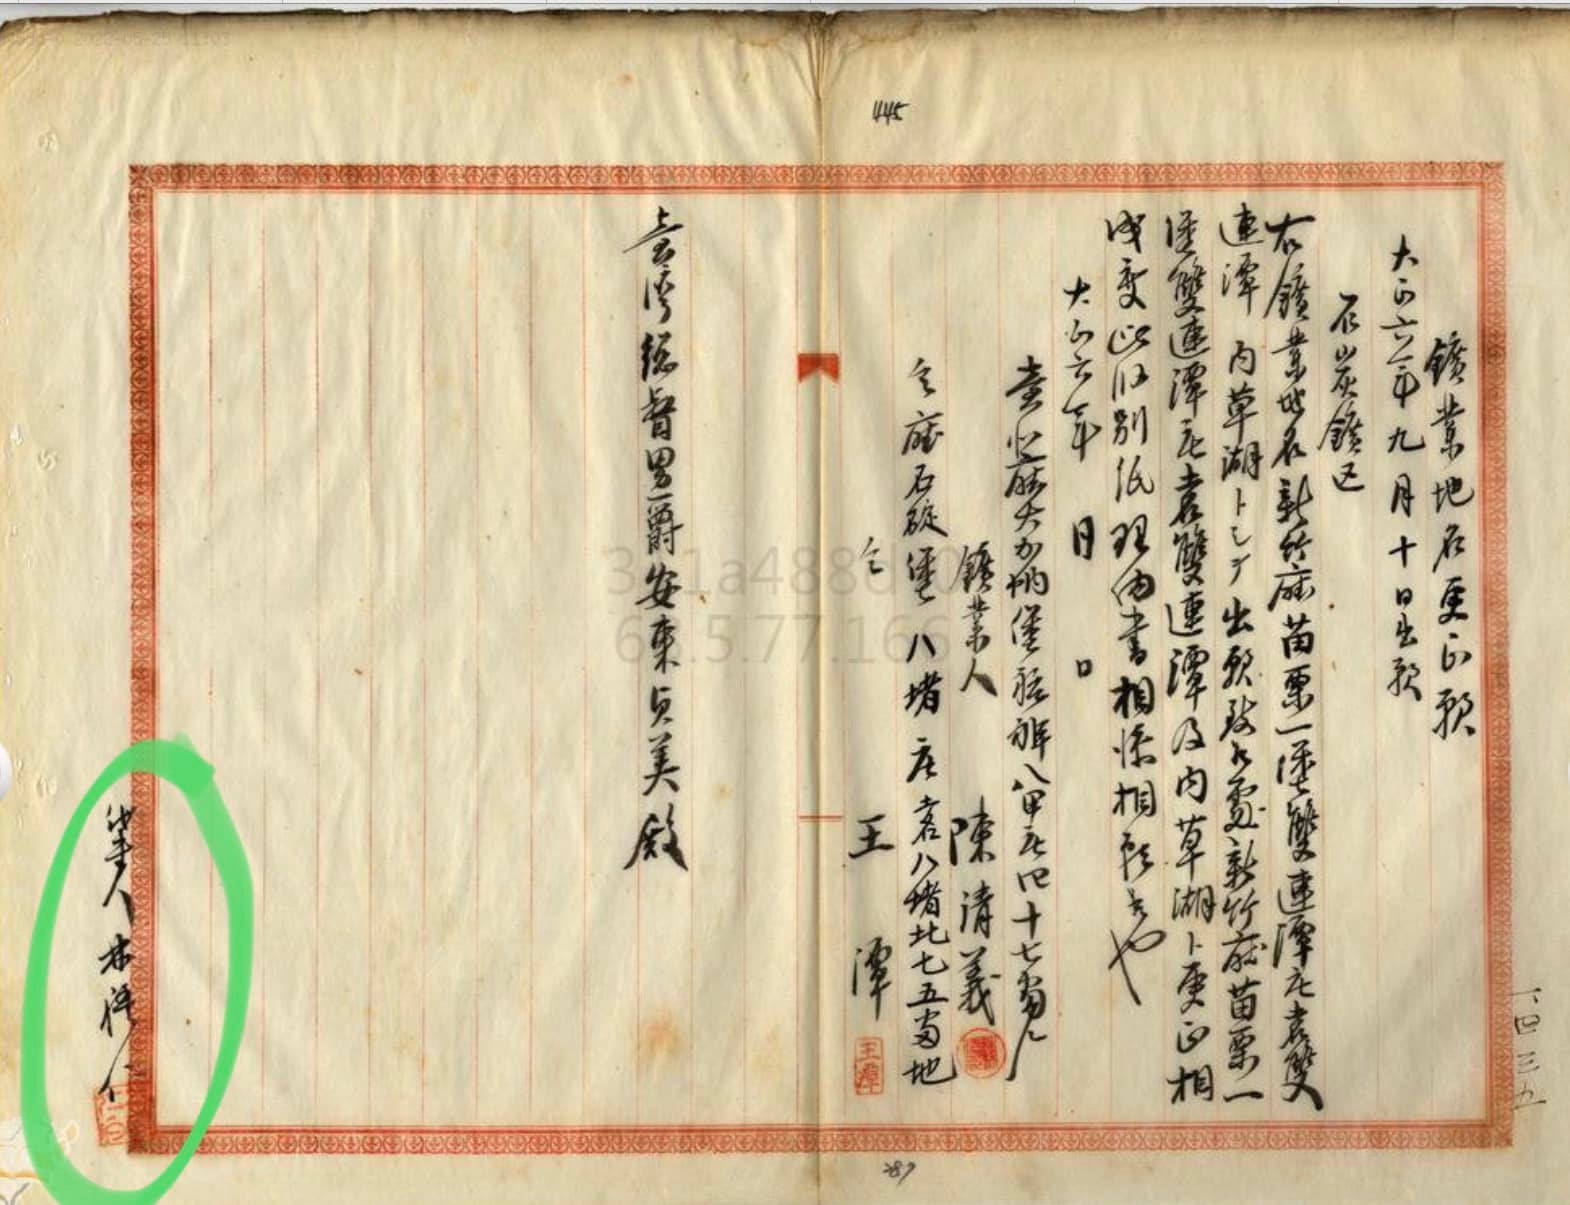 445
鑛業地名更正願
大正六年九月十日出願
石炭鑛区
右鑛業地名新竹廳苗栗一堡雙連潭庄土名雙
連潭 内草湖トシテ出願致候處新竹廳苗栗一
堡雙連潭庄土名雙連潭及内草湖ト更正相
成度此段別紙理由書相添相願候也
大正六年 月 日
臺北廳大加蚋堡艋舺八甲庄四十七番戶
鑛業人 陳清義
仝廳石碇堡八堵庄土名八堵北七五番地
仝 王潭
王潭
臺灣總督男爵安東貞美殿
筆人 林
一四三五
287